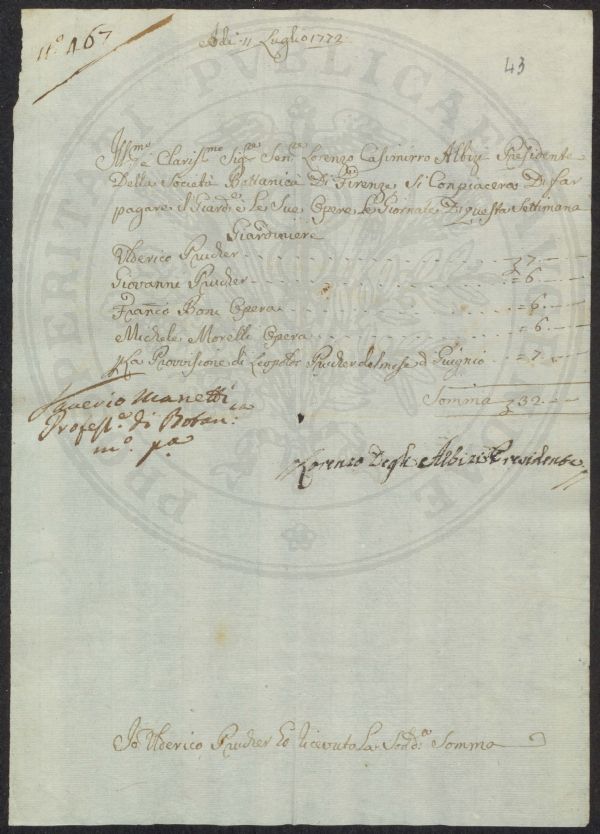 nº. 167
Adi 11 Luglio 1772
43
Ill.mo e Claris.mo Sig.re Sen.re Lorenzo Casimirro Albizi Presidente
Della Società Bottanica Di Firenze Si Conpiacerà Di far
pagare il Giard.e e le Sue Opere le Giornate Di questa Settimana
Giardiniere
Ulderico Prucher - - - 7 - -
Giovanni Prucher - - - = 6 - -
Franc.o Boni Opera - - - = 6 - -
Michele Morelli Opera - - - = 6 - -
P. la Provvisione di Leopoldo Prucher del mese d Giugnio - - = 7 - -
Somma 32 - -
Saverio Manetti
Profess.e di Botan.ca
m.o p.a
Lorenzo Degli Albizi Presidente
Io Ulderico Prucher ho ricevuto La Sodd.a Somma
PROSPERITATI PVBLICAE AVGENDAE